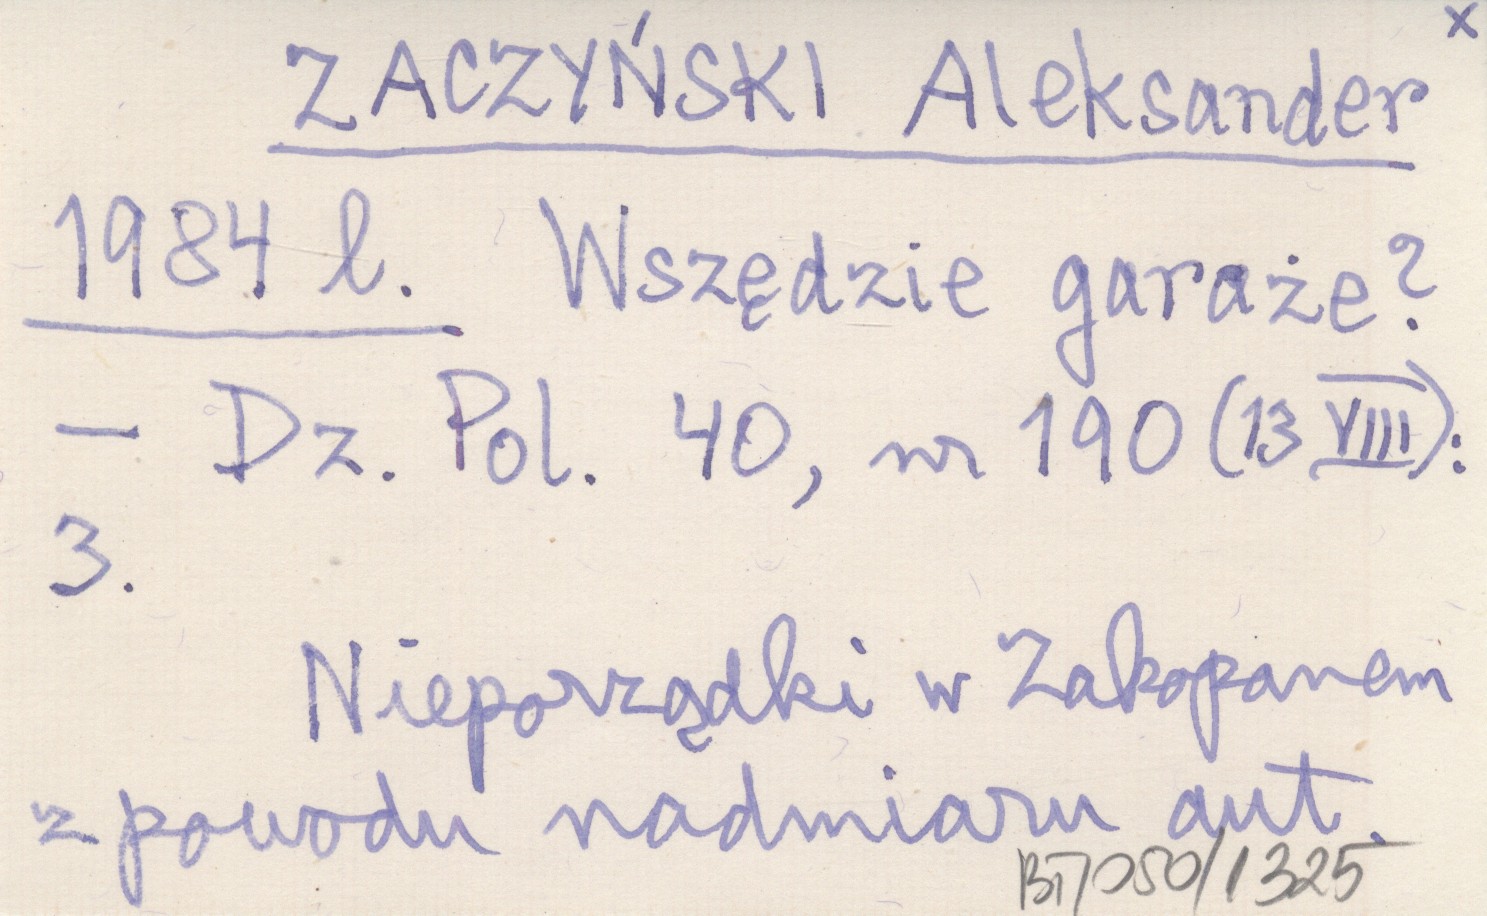 x
ZACZYŃSKI Aleksander
1984 l. Wszędzie garaże?
– Dz. Pol. 40, nr 190 (13 VIII):
3.
Nieporządki w Zakopanem
z powodu nadmiaru aut.
BT/050/1325